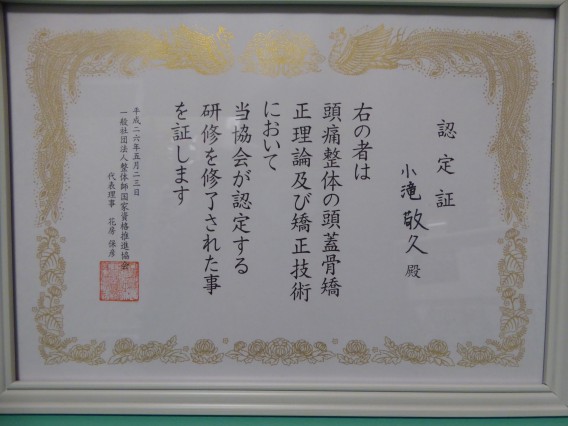 認定証
小滝敬久 殿
右の者は
頭痛整体の頭蓋骨矯
正理論及び矯正技術
において
当協会が認定する
研修を修了された事
を証します
平成二六年五月二三日
一般社団法人整体師国家資格推進協会
代表理事 花房 保彦